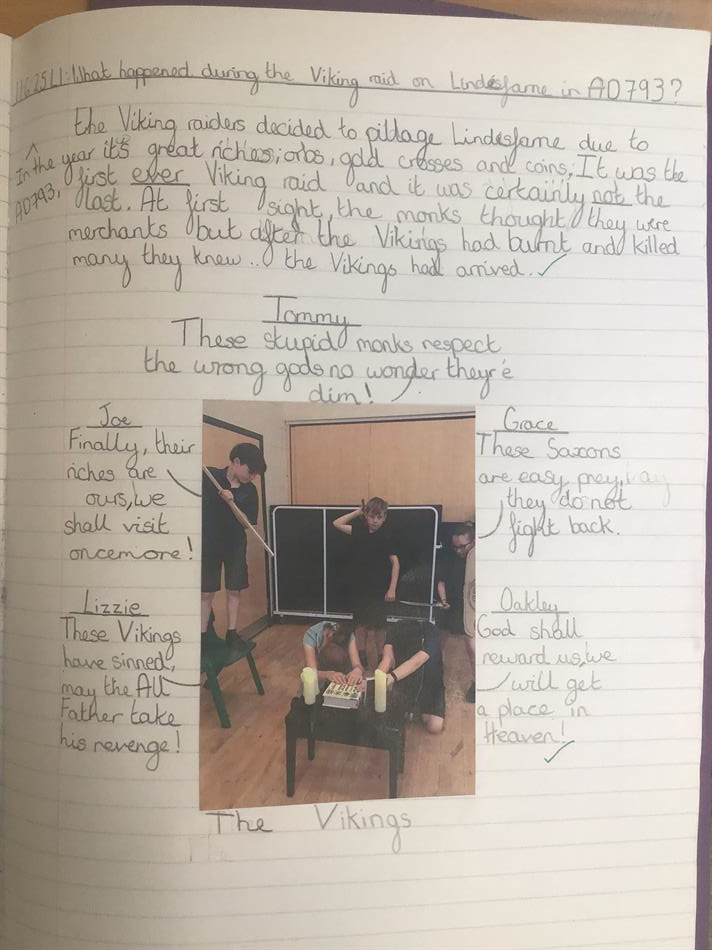 11.6.25 LI: What happened during the Viking raid on Lindesfarne in AD793?
the Viking raiders decided to pillage Lindesfarne due to
In the year AD793,
it's great riches; orbs, gold crosses and coins; It was the
first ever Viking raid and it was certainly not the
last. At first sight, the monks thought they were
merchants but after the Vikings had burnt and killed
many they knew... the Vikings had arrived.
Tommy
These stupid monks respect
the wrong gods no wonder they're
dim!
Joe
Finally, their
riches are
ours, we
shall visit
oncemore!
Grace
These Saxons
are easy prey,
they do not
fight back.
Lizzie
These Vikings
have sinned,
may the All
Father take
his revenge!
Oakley
God shall
reward us, we
will get
a place in
Heaven!
The Vikings